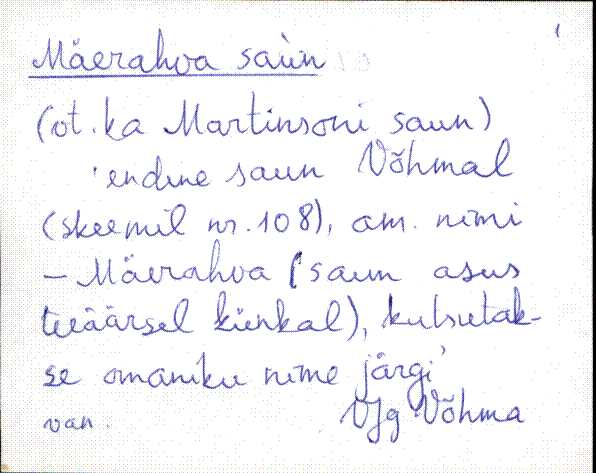 1
Mäerahva saùn
(vt. ka Martinsoni saun)
'endine saun Võhmal
(skeemil nr. 108), am. nimi
– Mäerahva (saun asus
teeäärsel künkal), kutsutak-
se omaniku nime järgi'
van. VJg Võhma